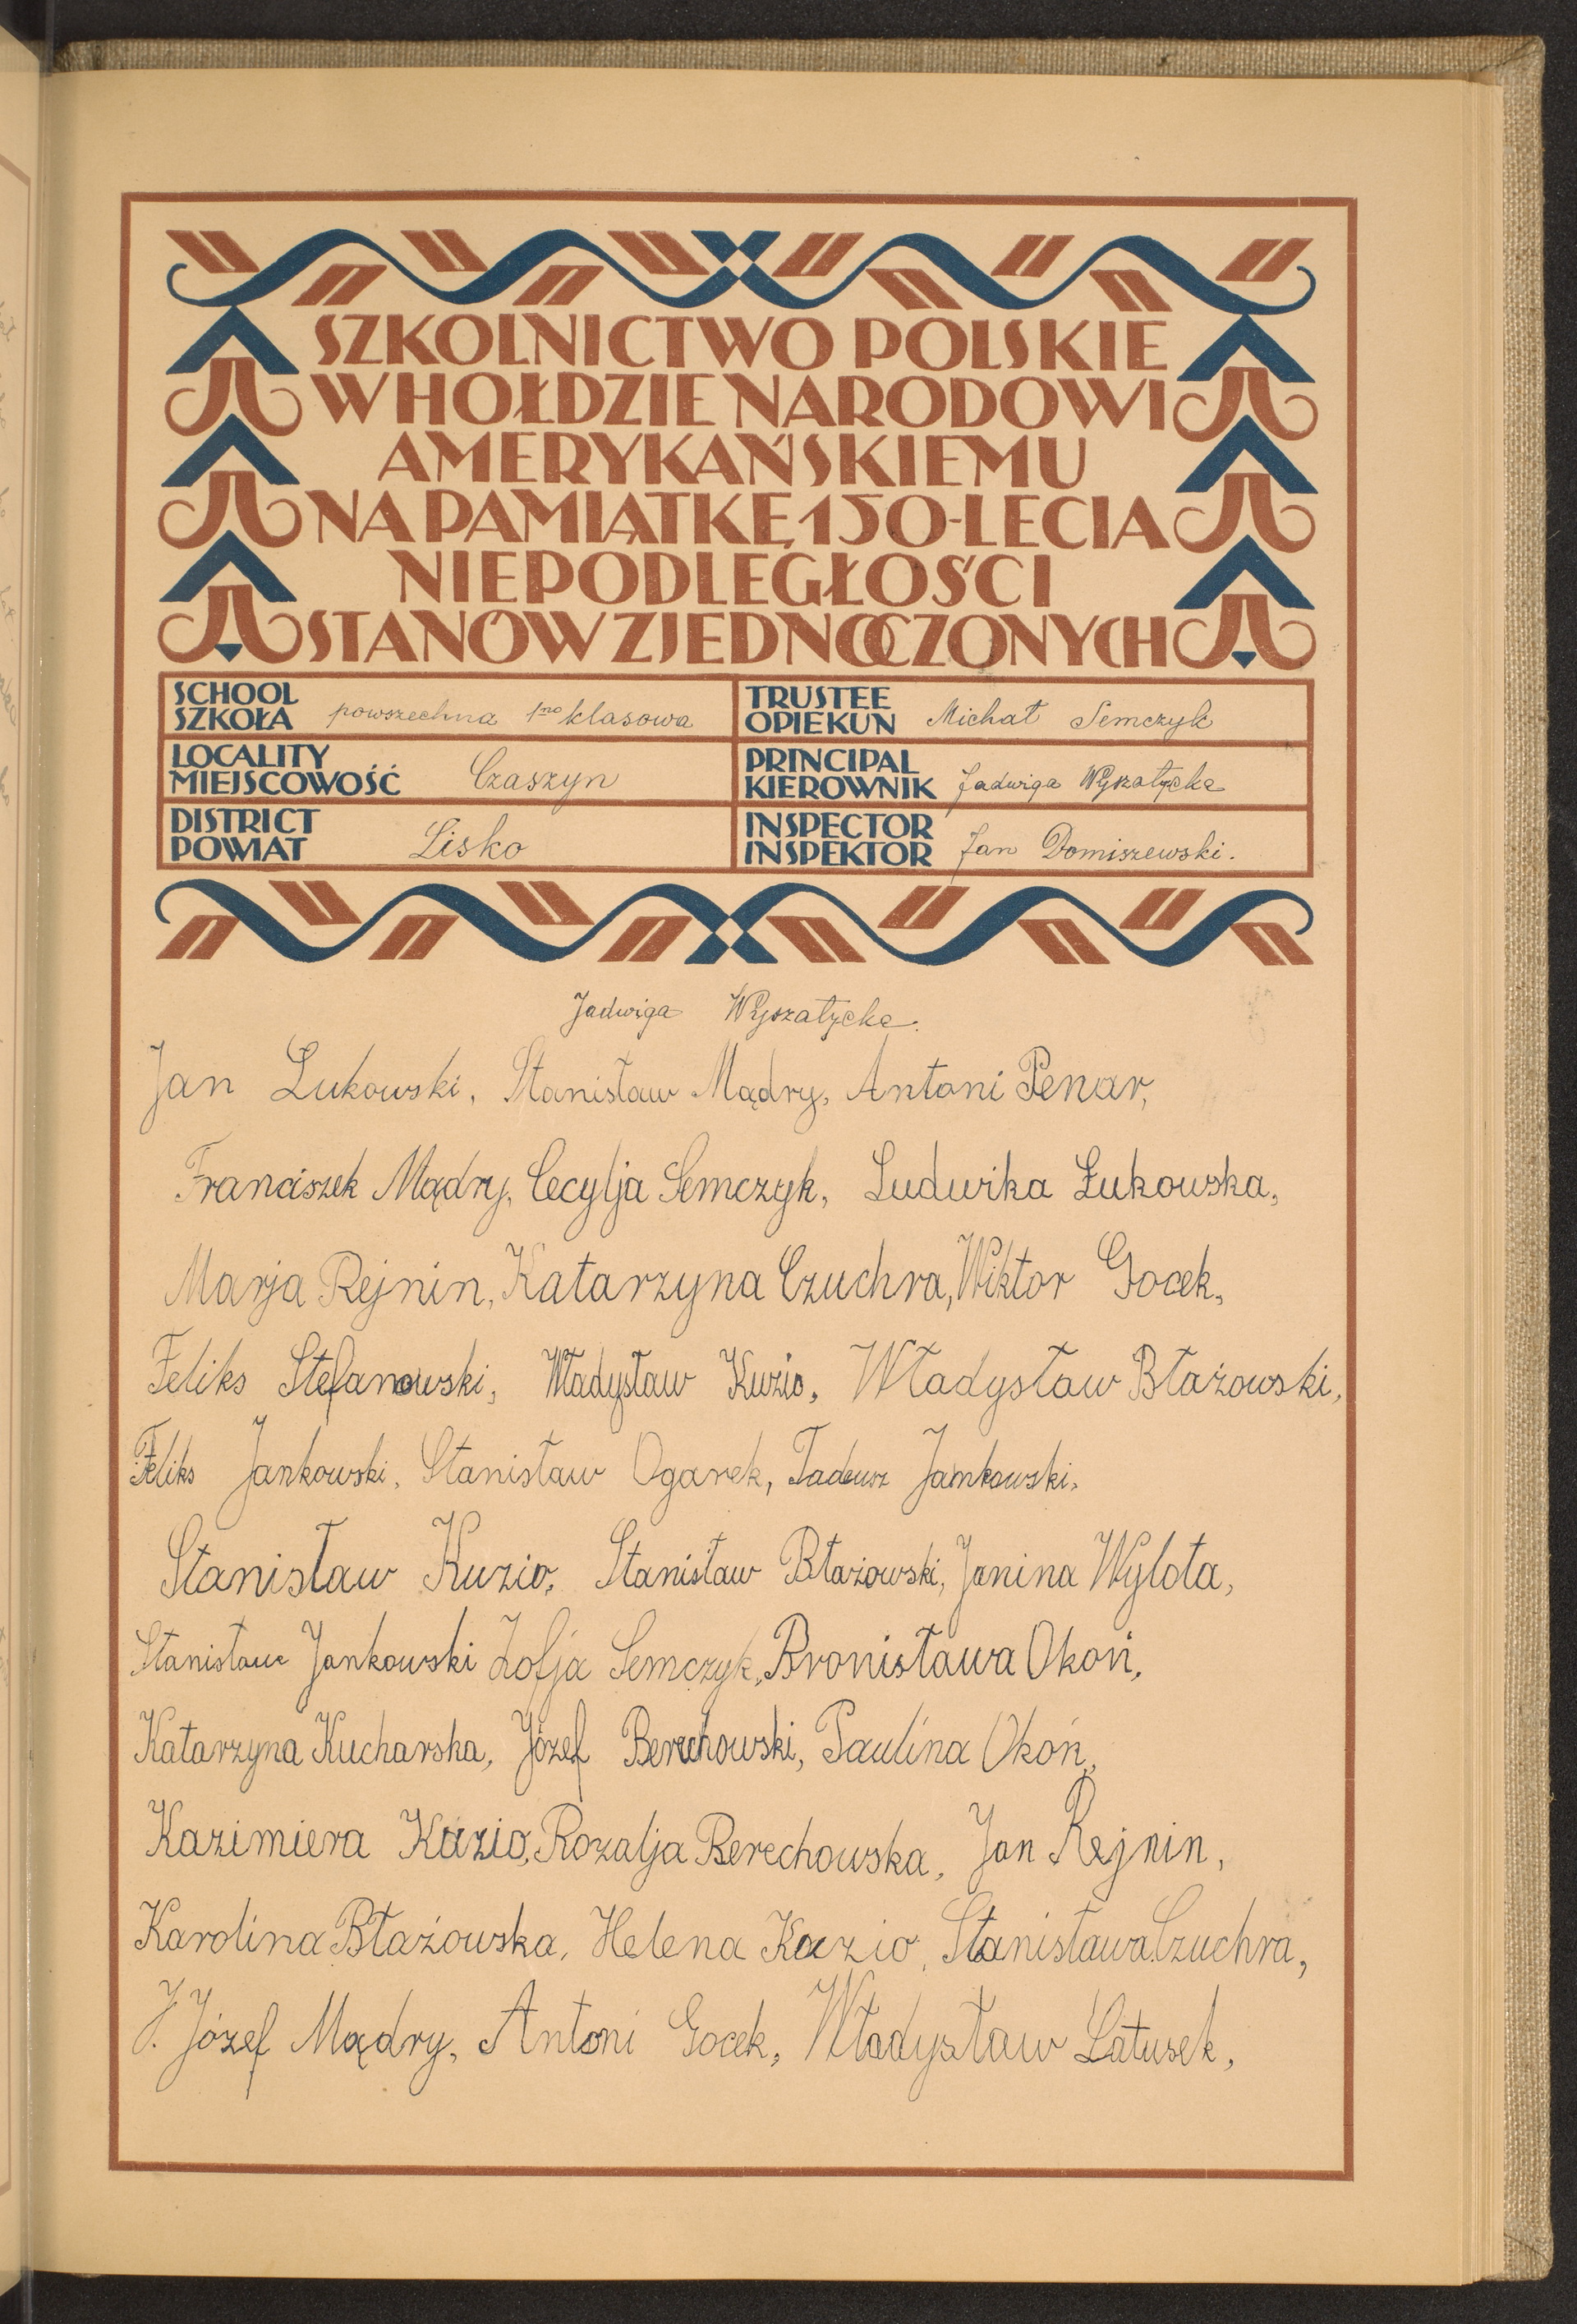 SZKOLNICTWO POLSKIE
W HOŁDZIE NARODOWI
AMERYKAŃSKIEMU
NA PAMIĄTKĘ 150-LECIA
NIEPODLEGŁOŚCI
STANÓW ZJEDNOCZONYCH
SCHOOL
SZKOŁA powszechna 1no klasowa
TRUSTEE
OPIEKUN Michał Semczyk
LOCALITY
MIEJSCOWOŚĆ Czaszyn
PRINCIPAL
KIEROWNIK Jadwiga Wyszatycka
DISTRICT
POWIAT Lisko
INSPECTOR
INSPEKTOR Jan Domiszewski.
Jadwiga Wyszatycka.
Jan Łukowski, Stanisław Mądry, Antoni Penar,
Franciszek Mądry, Cecylja Semczyk, Ludwika Łukowska,
Marja Rejnin, Katarzyna Czuchra, Wiktor Gocek,
Feliks Stefanowski, Władysław Kuzio, Władysław Błażowski,
Feliks Jankowski, Stanisław Ogarek, Tadeusz Jankowski,
Stanisław Kuzio, Stanisław Błażowski, Janina Wylota,
Stanisław Jankowski Zofja Semczyk, Bronisława Okoń,
Katarzyna Kucharska, Józef Berechowski, Paulina Okoń,
Kazimiera Kuzio, Rozalja Berechowska, Jan Rejnin,
Karolina Błażowska, Helena Kuzio, Stanisława Czuchra,
J. Józef Mądry, Antoni Gocek, Władysław Latusek,